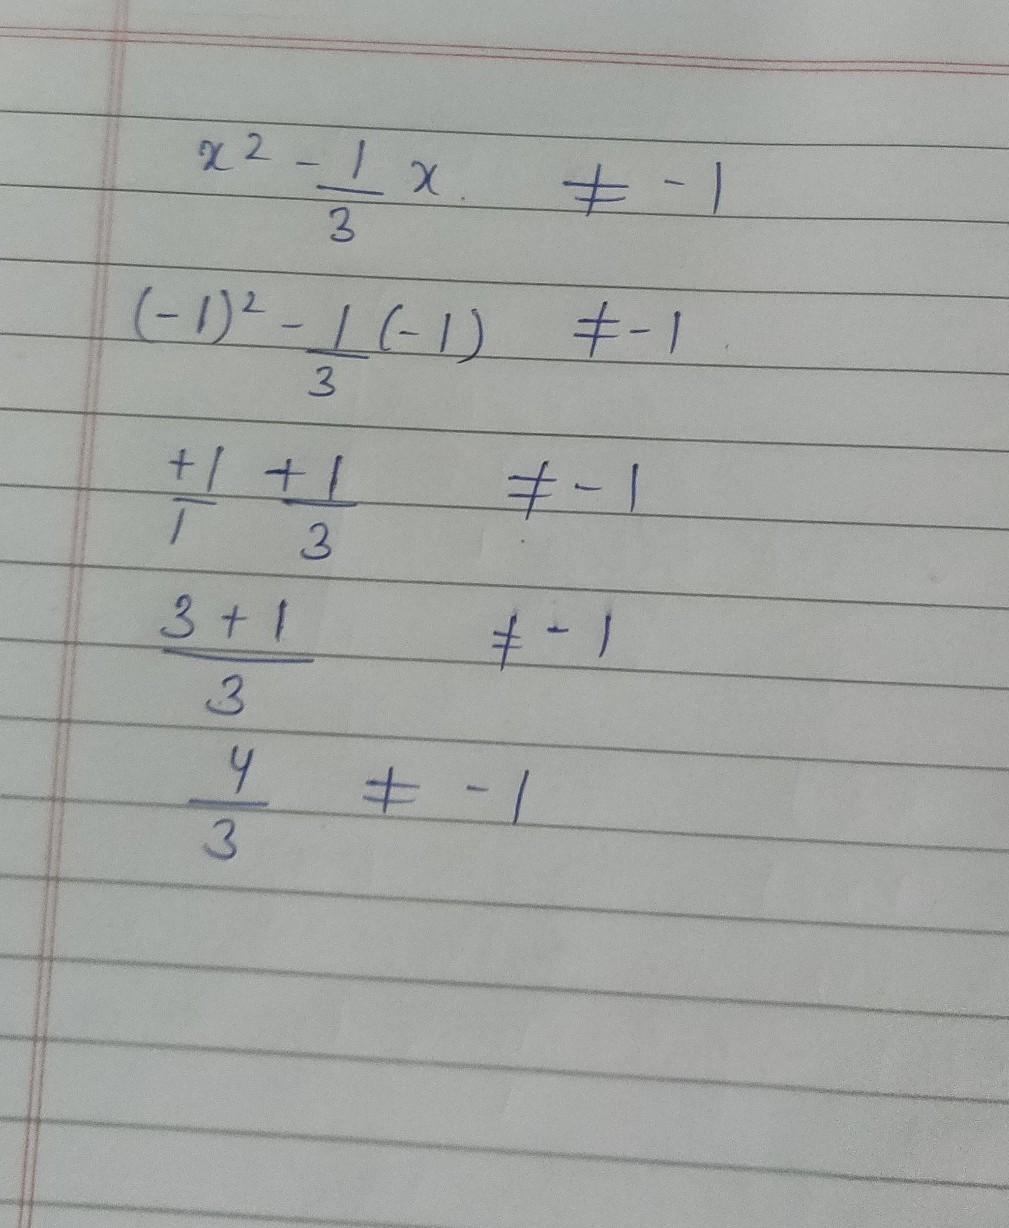 x² - 1/3 x. ≠ -1
(-1)² - 1/3 (-1) ≠ -1
+1/1 + 1/3 ≠ -1
3+1/3 ≠ -1
4/3 ≠ -1